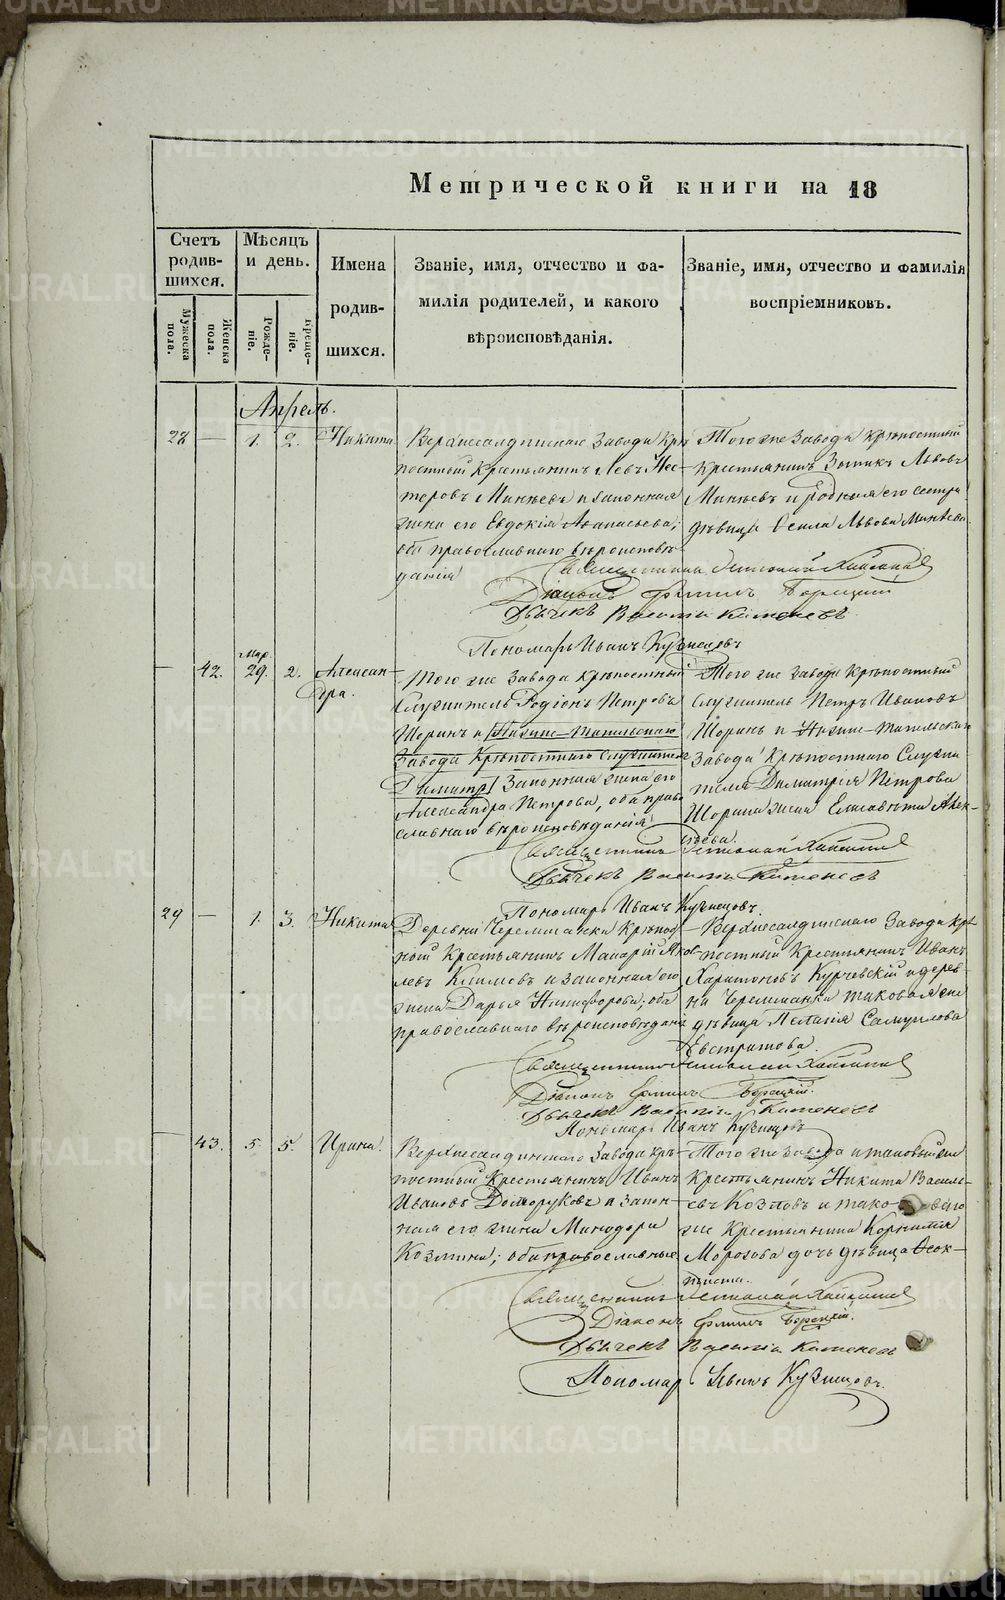 METRIKI.GASO-URAL.RU
Метрической книги на 18
Счетъ родив-шихся.
Мѣсяцъ и день.
Имена родив-шихся.
Званіе, имя, отчество и фа-
милія родителей, и какого
вѣроисповѣданія.
Званіе, имя, отчество и фамилія
воспріемниковъ.
Мужеска пола.
Женска пола.
Рожде-ніе.
Креще-ніе.
Апрель.
28 — 1. 2. Никита
Верхнесалдинскаго Завода крѣ-
постный Крестьянинъ Левъ Нес-
теровъ Минѣевъ и законная
жена его Евдокія Аѳанасьева;
оба православнаго вѣроисповѣ-
данія
Того же Завода крѣпостный
крестьянинъ Львовъ
Минѣевъ и родная его сестра
дѣвица Львова Минѣева
Священникъ
Діаконъ Борецкій
Дьячекъ Василій
Пономарь Иванъ Кузнецовъ
— 42. Мар. 29. 2. Алексан-
дра.
Того же Завода крѣпостный
Служитель Родіонъ Петровъ
Шоринъ и Нижне-Тагильскаго
Завода Крѣпостнаго служителя
Димитр Законная жена его
Александра Петрова, оба право-
славнаго вѣроисповѣданія
Того же завода Крѣпостный
Служитель Петръ Ивановъ
Шоринъ и Нижне-Тагильскаго
Завода Крѣпостнаго Служи-
теля Димитрія Петрова
Шорина жена Елисавета Алек-
сѣева.
Священникъ
Дьячекъ Василій
Пономарь Иванъ Кузнецовъ.
29 — 1. 3. Никита
Деревни Черемшанки Крѣпос-
ной Крестьянинъ Макарій Яков-
левъ Климовъ и законная его
жена Дарья Никифорова; оба
православнаго вѣроисповѣданія
Верхнесалдинскаго Завода крѣ-
постный Крестьянинъ Иванъ
Харитоновъ Курчевскій и дерев-
ни Черемшанки таковая же
дѣвица Пелагія Самуилова
Евстратова.
Священникъ
Діаконъ Борецкій.
Дьячекъ Василій
Пономарь Иванъ Кузнецовъ
— 43. 5. 5. Ирина.
Верхнесалдинскаго Завода крѣ-
постный Крестьянинъ Иванъ
Ивановъ Долгоруковъ и закон-
ная его жена Минодора
Козмина; оба православные
Того же завода и таковый же
крестьянинъ Никита Василь-
евъ Козловъ и таковаго
же Крестьянина Корнилія
Морозова дочь дѣвица Ѳеок-
тиста.
Священникъ
Діаконъ Борецкій.
Дьячекъ Василій
Пономарь Иванъ Кузнецовъ.